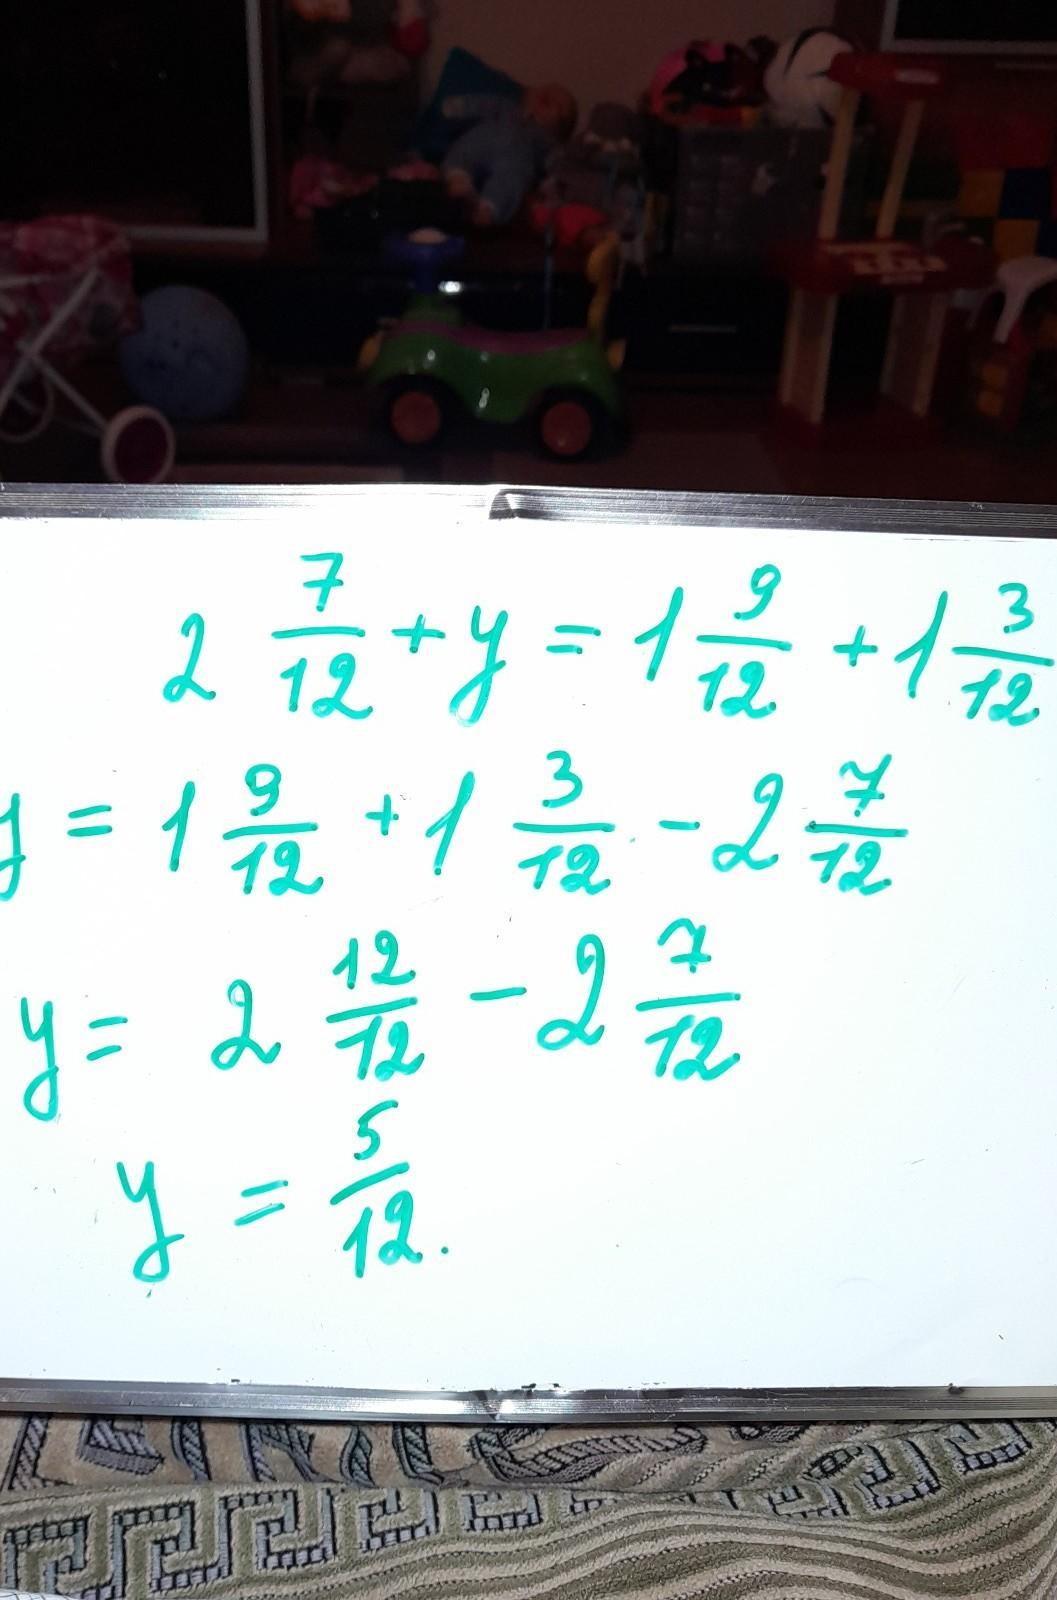 2 7/12 + y = 1 9/12 + 1 3/12
y = 1 9/12 + 1 3/12 - 2 7/12
y = 2 12/12 - 2 7/12
y = 5/12.